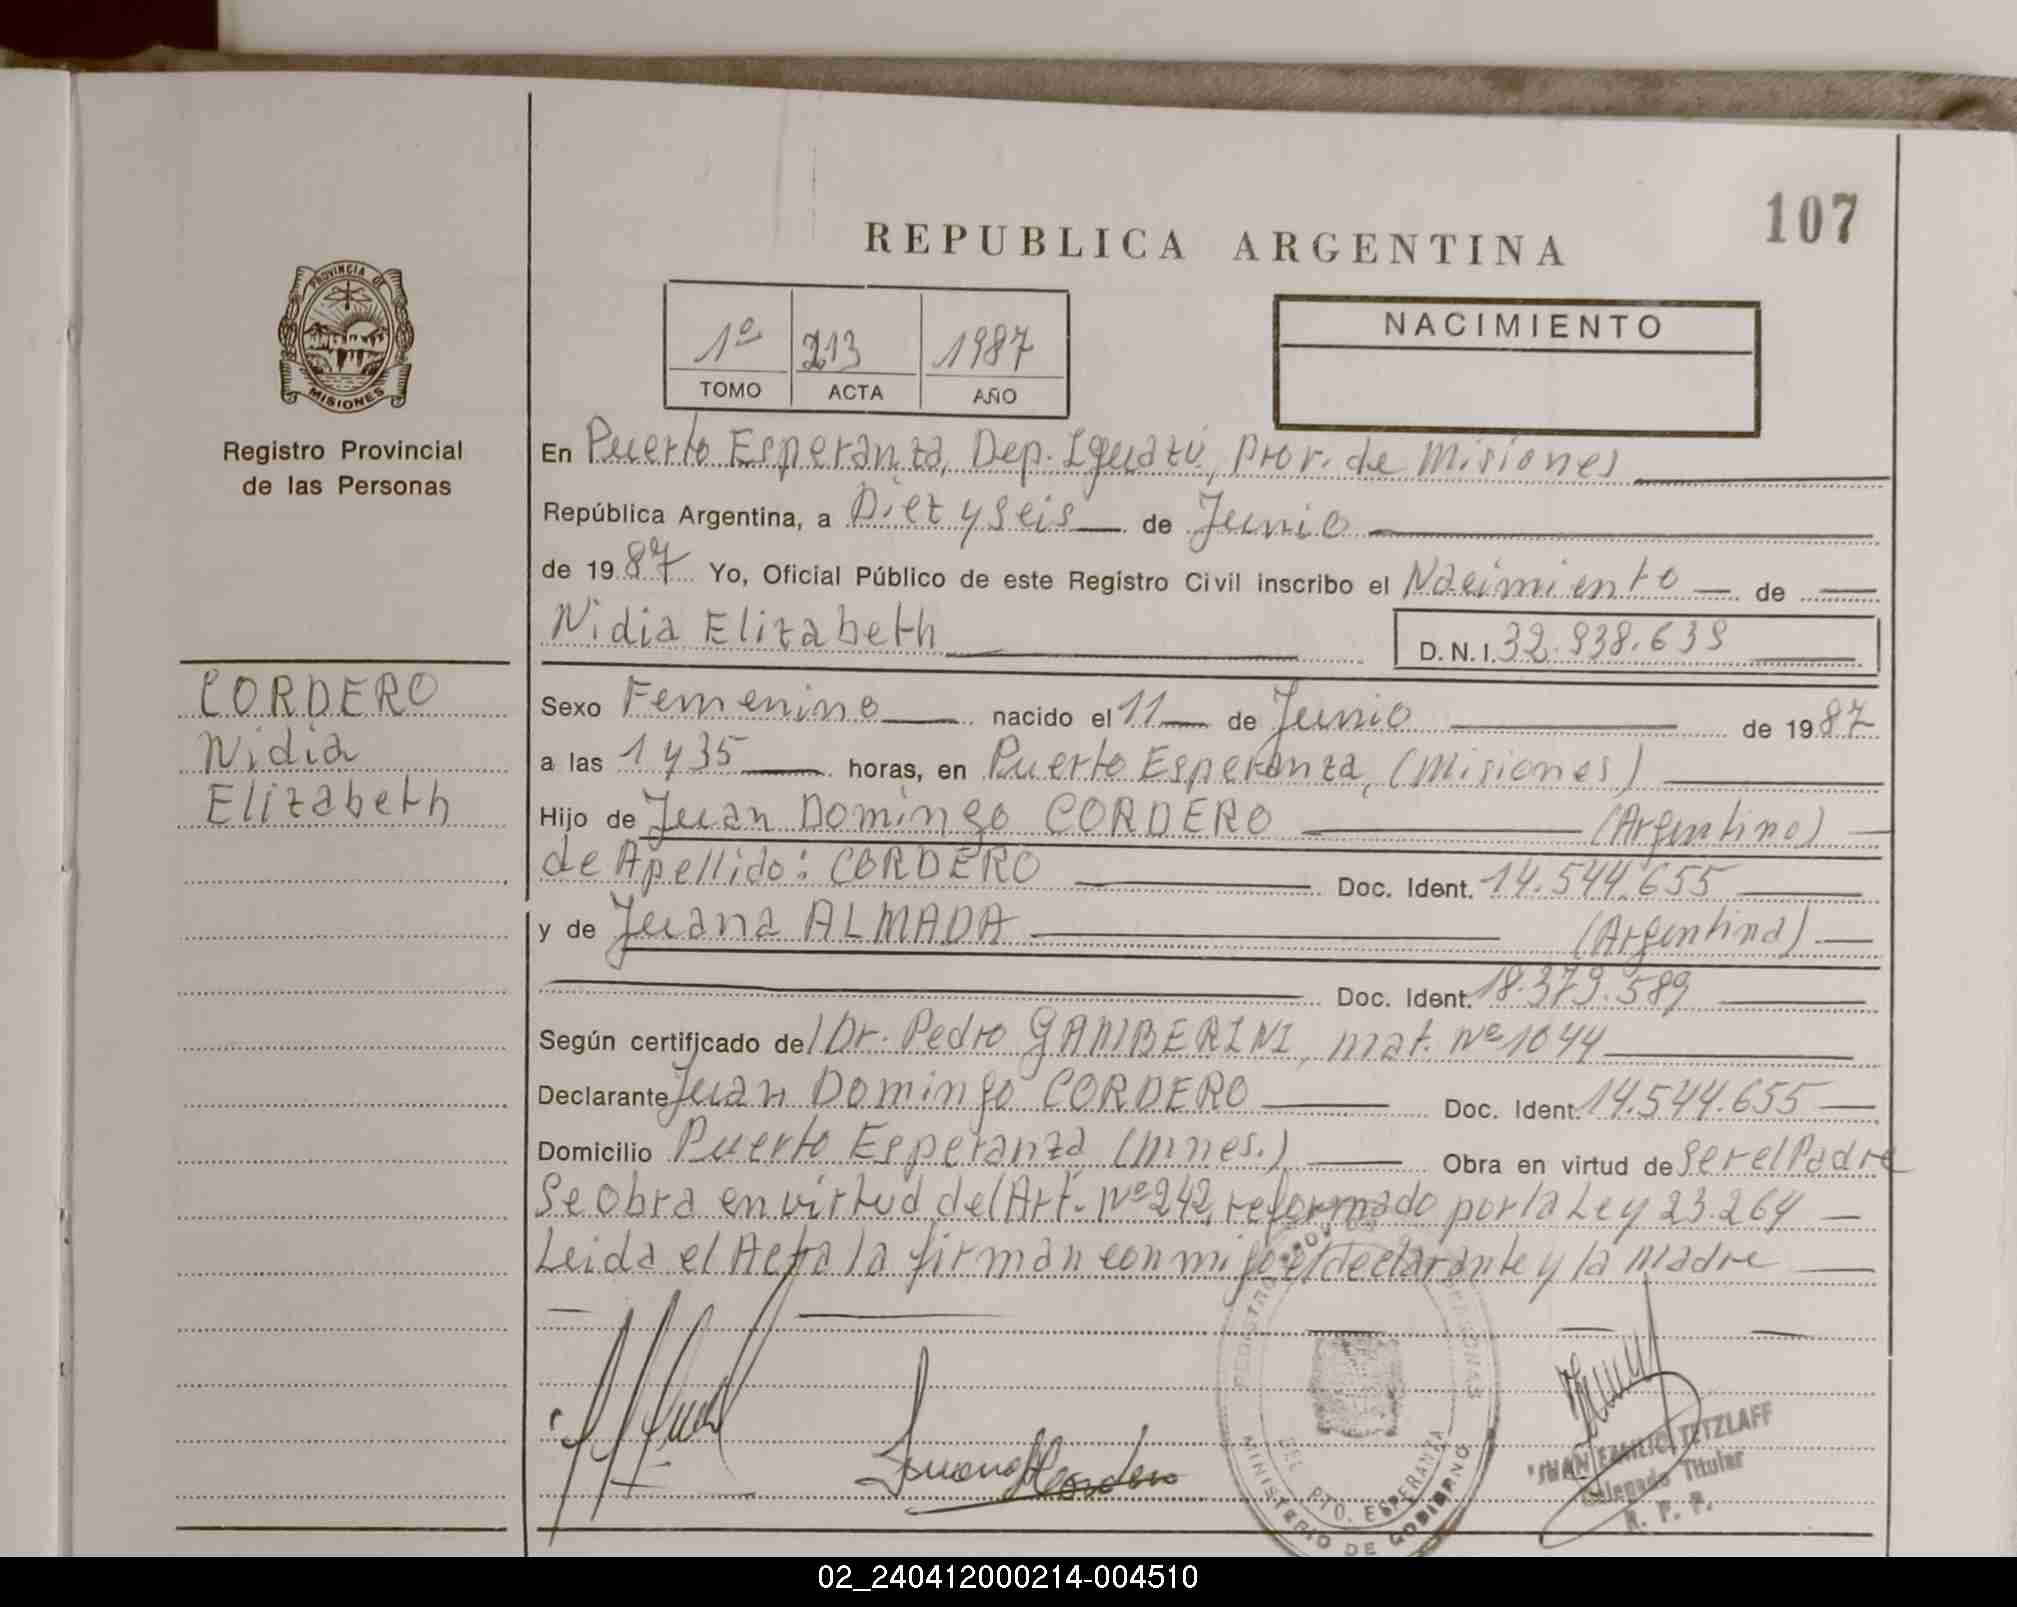 107
REPUBLICA ARGENTINA
PROVINCIA DE
MISIONES
Registro Provincial
de las Personas
1º 213 1987
TOMO ACTA AÑO
NACIMIENTO
En Puerto Esperanza, Dep. Iguazú, Prov. de Misiones
República Argentina, a Diez y Seis de Junio
de 1987 Yo, Oficial Público de este Registro Civil inscribo el Nacimiento de
Nidia Elizabeth D.N.I. 32.938.639
CORDERO
Nidia
Elizabeth
Sexo Femenino nacido el 11 de Junio de 1987
a las 1 y 35 horas, en Puerto Esperanza, (Misiones)
Hijo de Juan Domingo CORDERO (Argentino)
de Apellido: CORDERO Doc. Ident. 14.544.655
y de Juana ALMADA (Argentina)
Doc. Ident. 18.379.589
Según certificado del Dr. Pedro GAMBERINI, mat. Nº 1044
Declarante Juan Domingo CORDERO Doc. Ident. 14.544.655
Domicilio Puerto Esperanza (Mnes.) Obra en virtud de ser el Padre
Se obra en virtud del Art. Nº 242, reformado por la Ley 23.264
Leida el Acta la firman conmigo el declarante y la Madre
REGISTRO PERSONAS
DEL PTO. ESPERANZA
MINISTERIO DE GOBIERNO
JUAN EMILIO TETZLAFF
Delegado Titular
R. P. P.
02_240412000214-004510